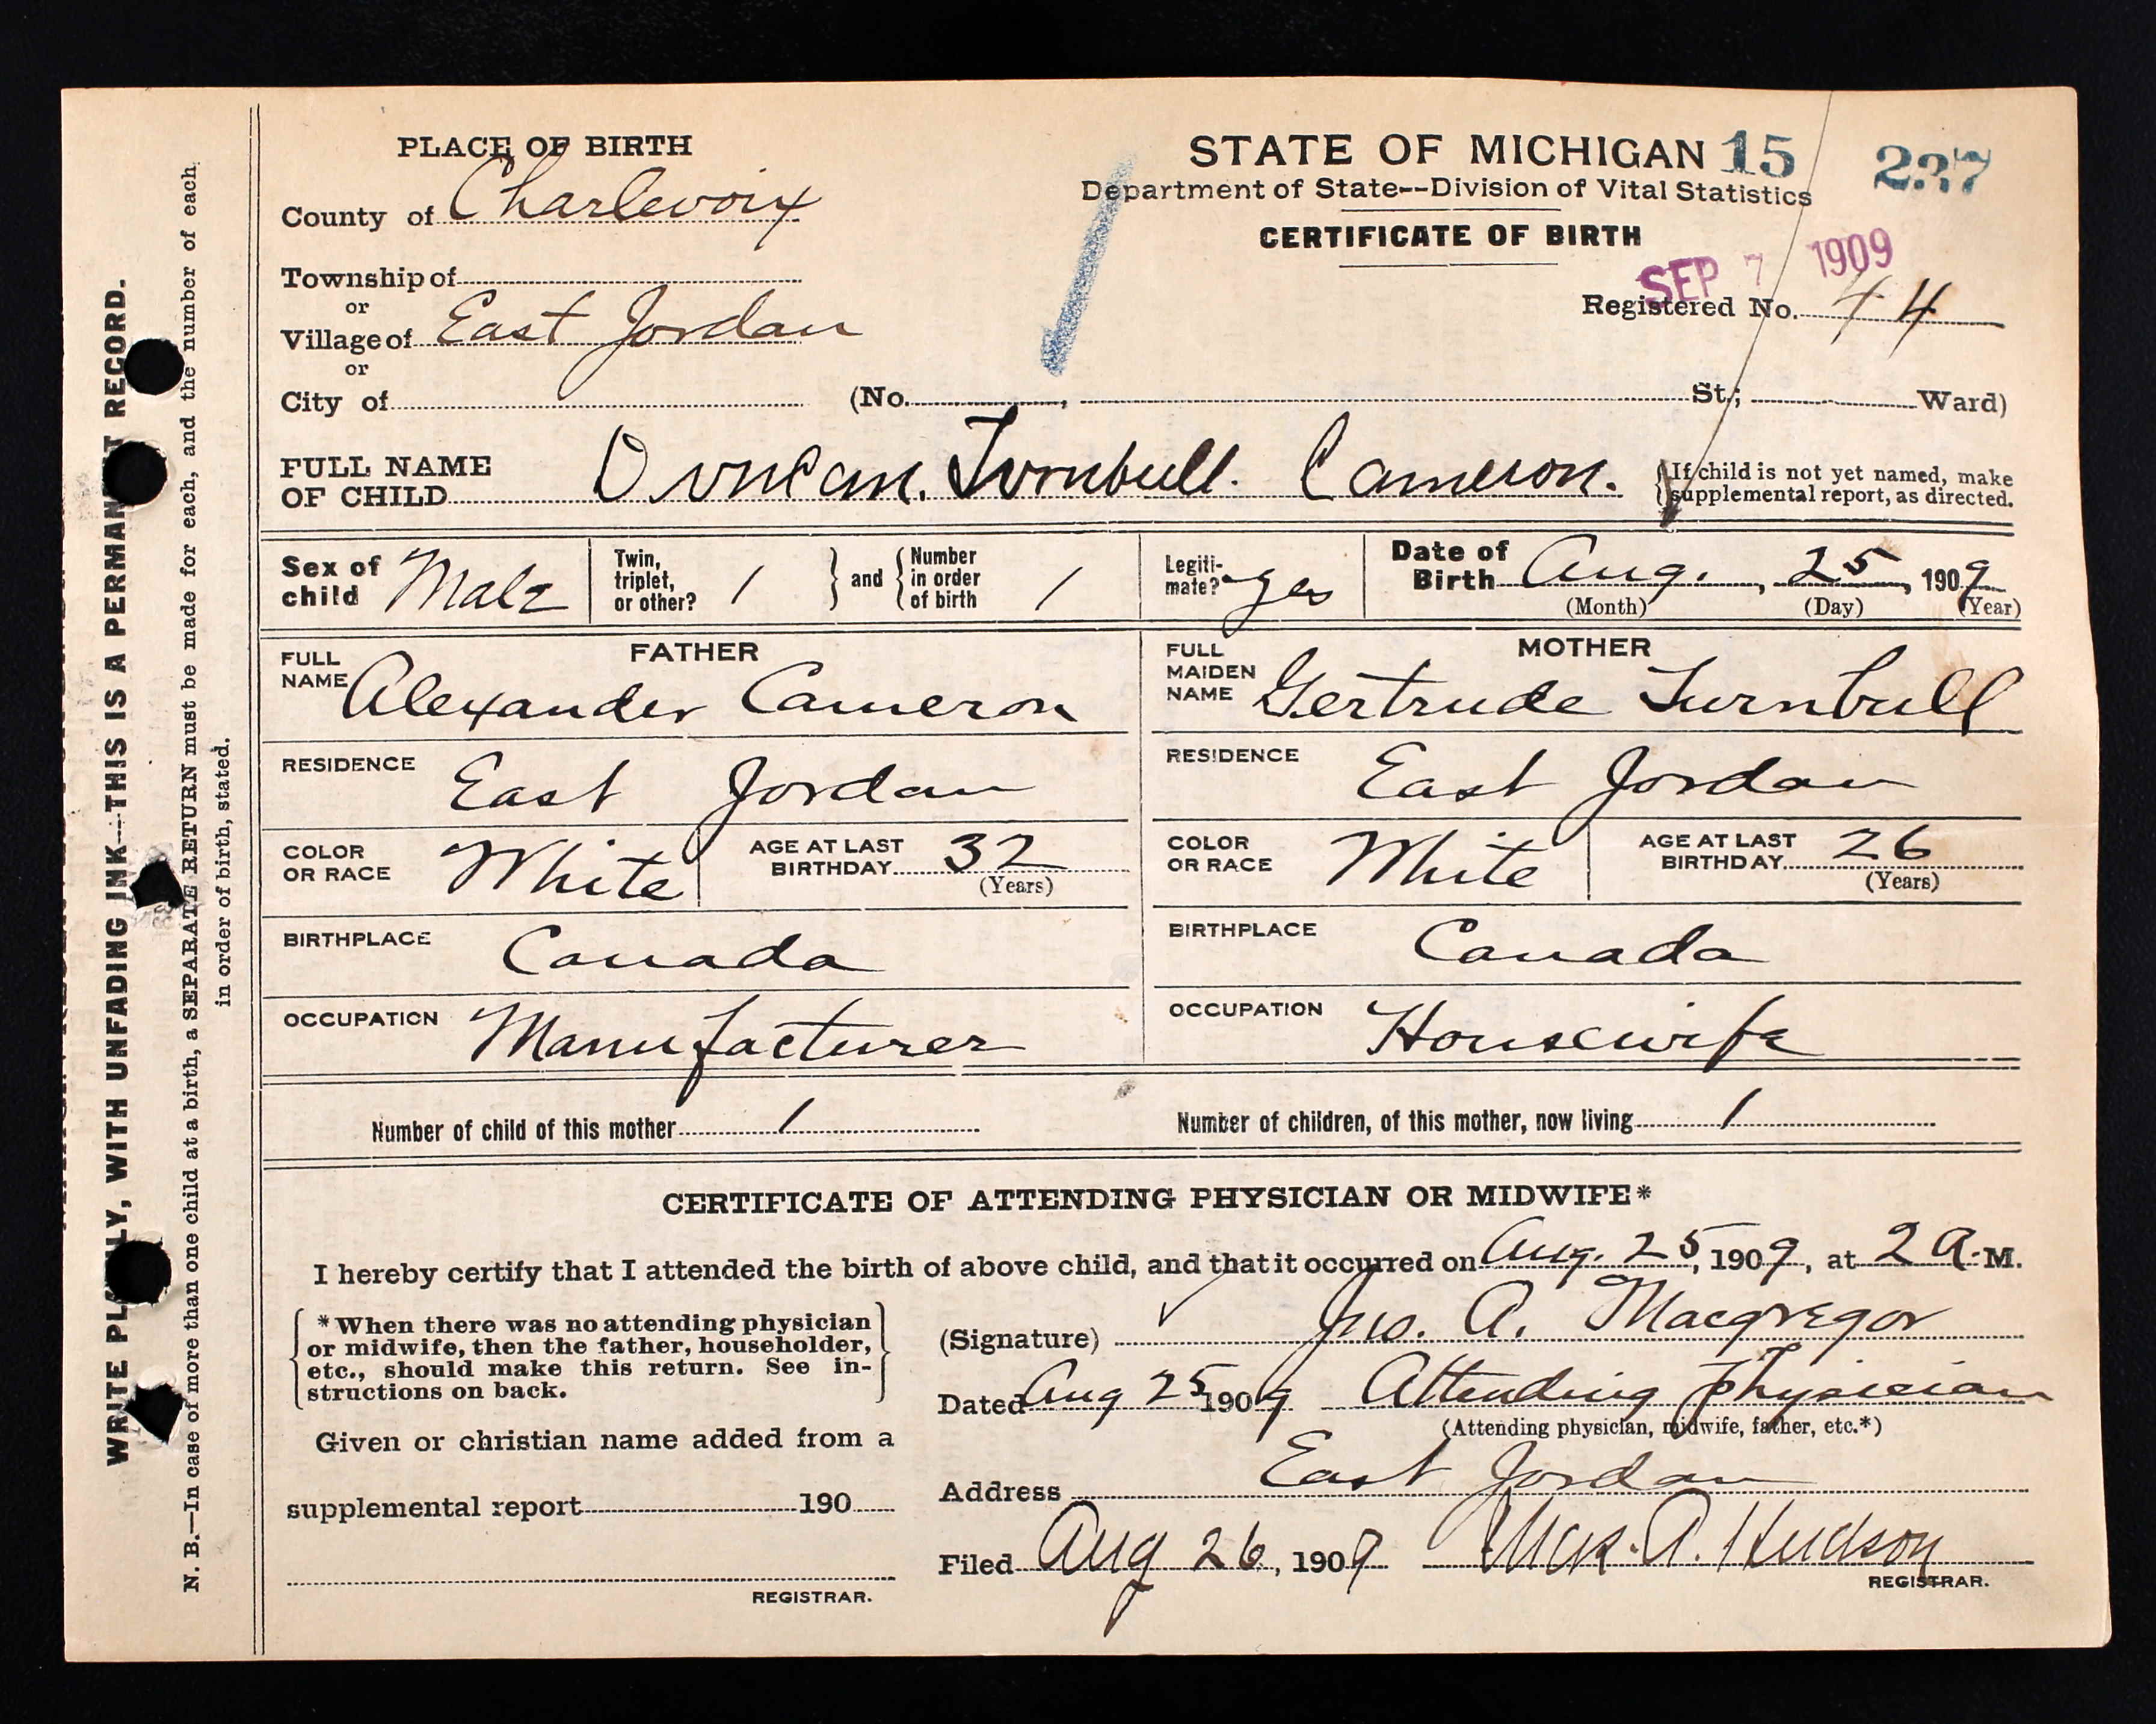 PLACE OF BIRTH
County of Charlevoix
Township of
or
Village of East Jordan
or
City of
STATE OF MICHIGAN 15 237
Department of State--Division of Vital Statistics
CERTIFICATE OF BIRTH
SEP 7 1909
Registered No. 44
(No. , St.; Ward)
FULL NAME
OF CHILD Duncan. Turnbull. Cameron.
{If child is not yet named, make
supplemental report, as directed.
Sex of
child Male
Twin,
triplet,
or other? 1
} and {
Number
in order
of birth 1
Legiti-
mate? yes
Date of
Birth Aug. , 25 , 1909
(Month) (Day) (Year)
FATHER
FULL
NAME Alexander Cameron
RESIDENCE East Jordan
COLOR
OR RACE White
AGE AT LAST
BIRTHDAY 32
(Years)
BIRTHPLACE Canada
OCCUPATION Manufacturer
MOTHER
FULL
MAIDEN
NAME Gertrude Turnbull
RESIDENCE East Jordan
COLOR
OR RACE White
AGE AT LAST
BIRTHDAY 26
(Years)
BIRTHPLACE Canada
OCCUPATION Housewife
Number of child of this mother 1
Number of children, of this mother, now living 1
CERTIFICATE OF ATTENDING PHYSICIAN OR MIDWIFE*
I hereby certify that I attended the birth of above child, and that it occurred on Aug. 25, 1909, at 2 A. M.
*When there was no attending physician
or midwife, then the father, householder,
etc., should make this return. See in-
structions on back.
Given or christian name added from a
supplemental report 190
REGISTRAR.
(Signature) Jno. A. Macgregor
Dated Aug 25 1909 Attending Physician
(Attending physician, midwife, father, etc.*)
Address East Jordan
Filed Aug 26, 1909 A. Hudson
REGISTRAR.
WRITE PLAINLY, WITH UNFADING INK---THIS IS A PERMANENT RECORD.
N. B.—In case of more than one child at a birth, a SEPARATE RETURN must be made for each, and the number of each
in order of birth, stated.